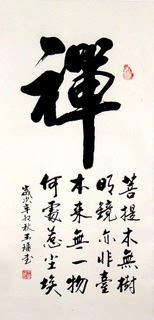 禪
菩提本無樹
明鏡亦非臺
本來無一物
何處惹尘埃
歲次辛卯秋